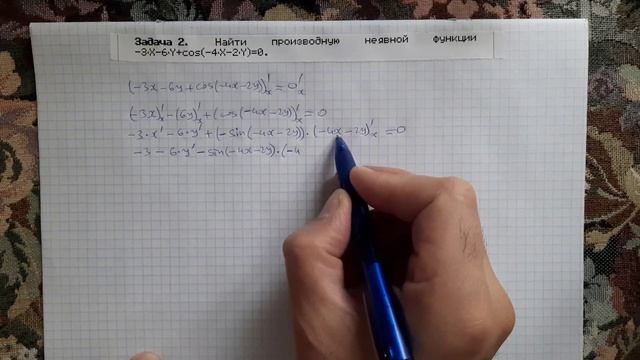 Задача 2. Найти производную неявной функции
-3·X-6·Y+cos(-4·X-2·Y)=0.
(-3x-6y+cos(-4x-2y))'ₓ=0'ₓ
(-3x)'ₓ-(6y)'ₓ+(cos(-4x-2y))'ₓ=0
-3·x'-6·y'+(-sin(-4x-2y))·(-4x-2y)'ₓ=0
-3-6·y'-sin(-4x-2y)·(-4